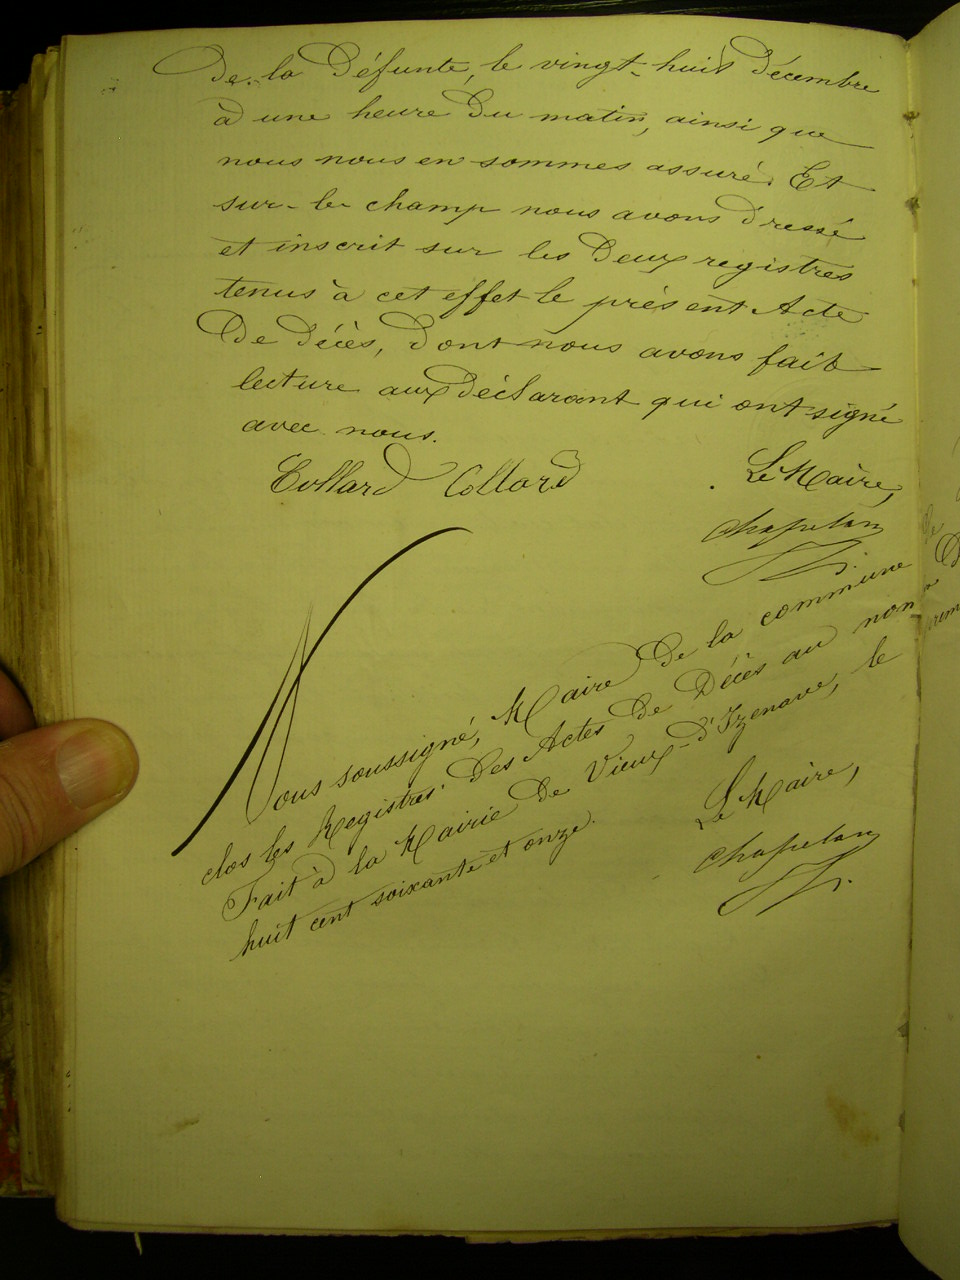 De la Défunte, le vingt-huit décembre
à une heure du matin, ainsi que
nous nous en sommes assuré. Et
sur-le champ nous avons dressé
et inscrit sur les deux registres
tenus à cet effet le présent Acte
De décès, dont nous avons fait
lecture aux déclarant qui ont signé
avec nous.
Collard Collard
Le Maire,
Chapelan
Nous soussigné, Maire De la commune
clos les Registres Des Actes De Décès au nom
Fait à la Mairie De Vieux-d'Izenave, le
huit cent soixante et onze.
Le Maire,
Chapelan